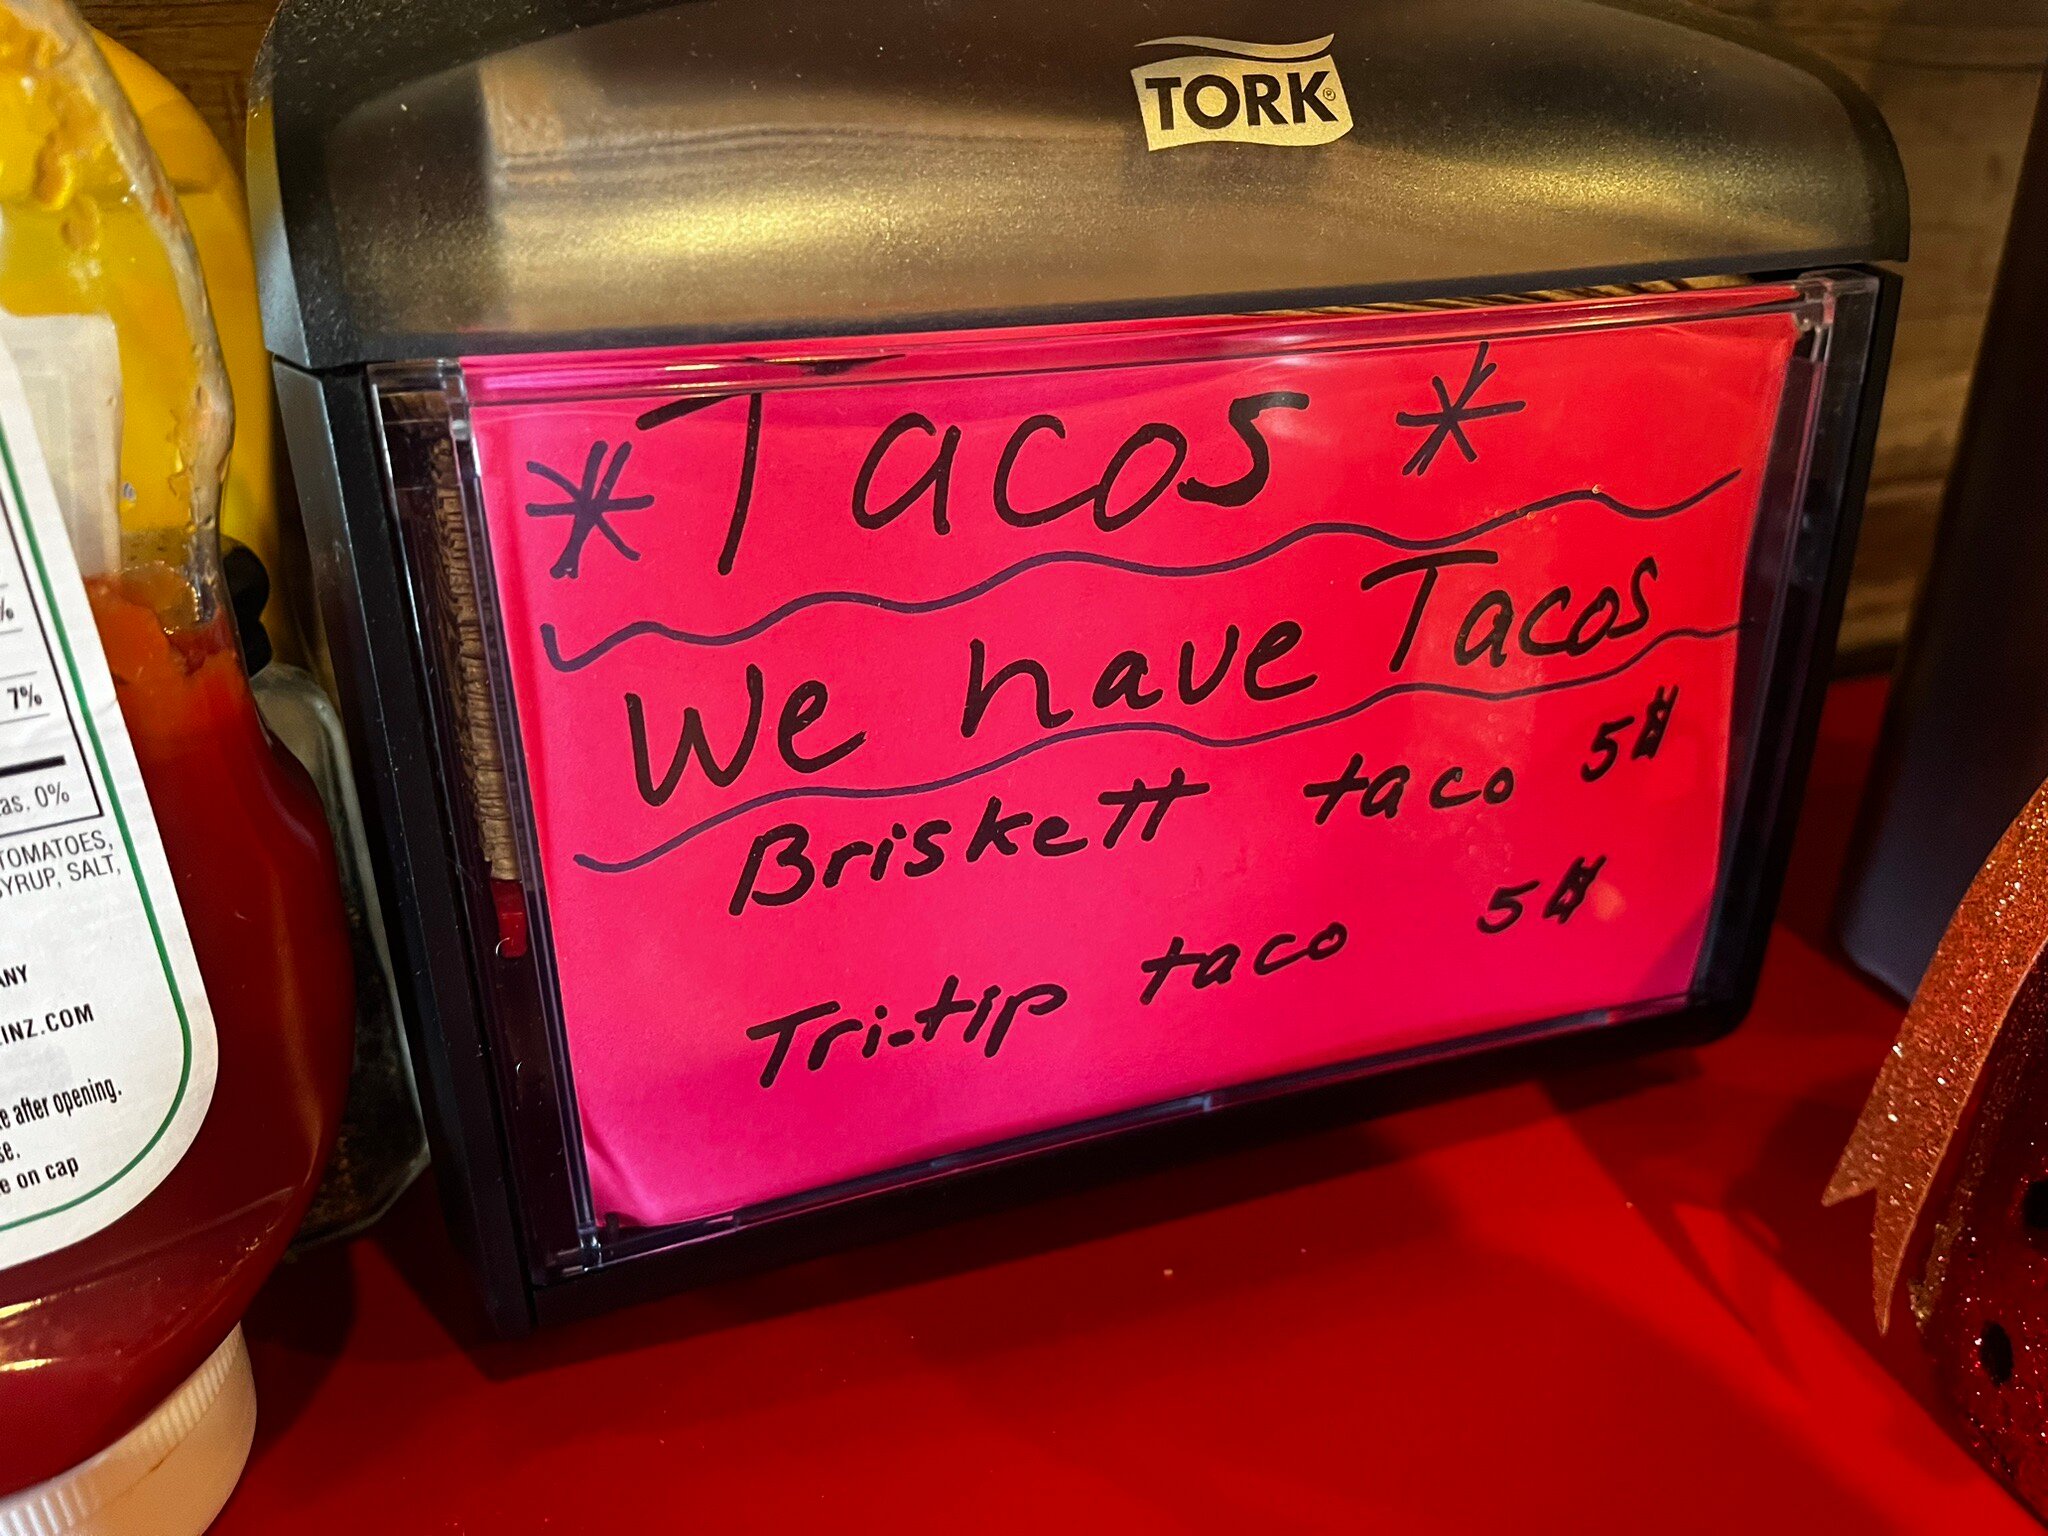 TORK®
*Tacos*
We have Tacos
Briskett taco 5$
Tri-tip taco 5$
%
7%
as. 0%
TOMATOES,
SYRUP, SALT,
ANY
INZ.COM
e after opening.
se.
e on cap